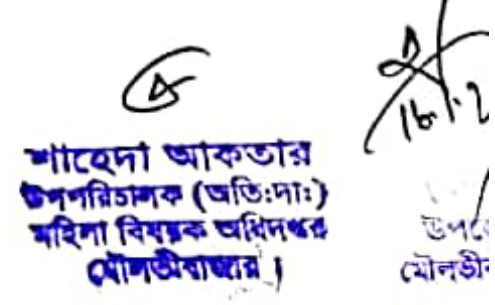 শাহেদা আকতার
উপপরিচালক (অতি:দা:)
মহিলা বিষয়ক অধিদপ্তর
মৌলভীবাজার।